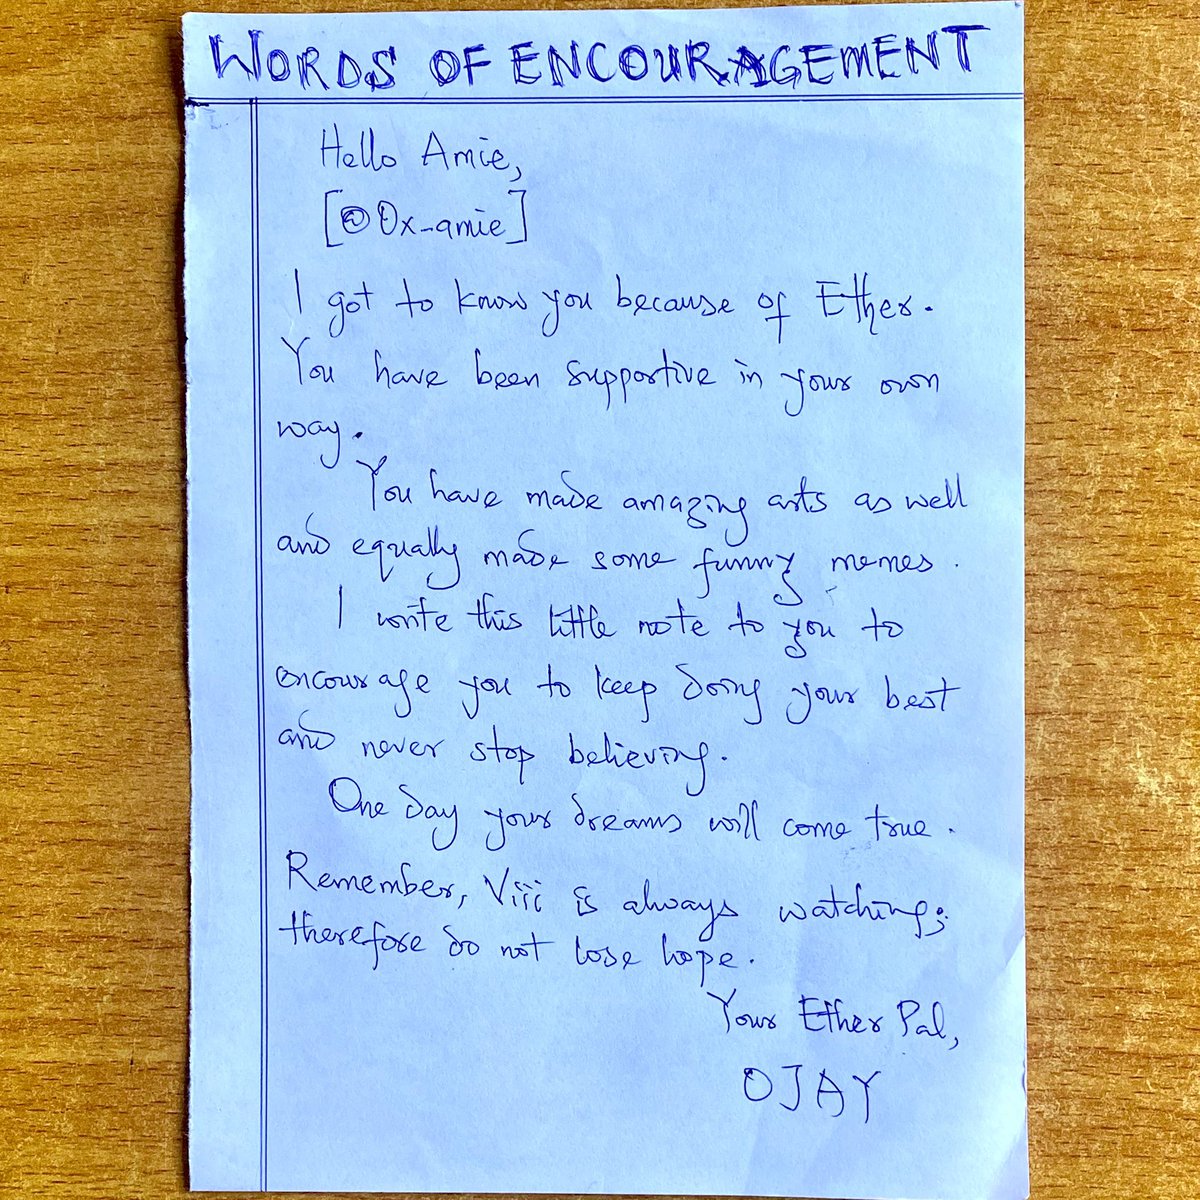 WORDS OF ENCOURAGEMENT
Hello Amie,
[@0x_amie]
I got to know you because of Ether.
You have been supportive in your own
way.
You have made amazing arts as well
and equally made some funny memes.
I write this little note to you to
encourage you to keep doing your best
and never stop believing.
One day your dreams will come true.
Remember, Viii is always watching;
therefore do not lose hope.
Your Ether Pal,
OJAY